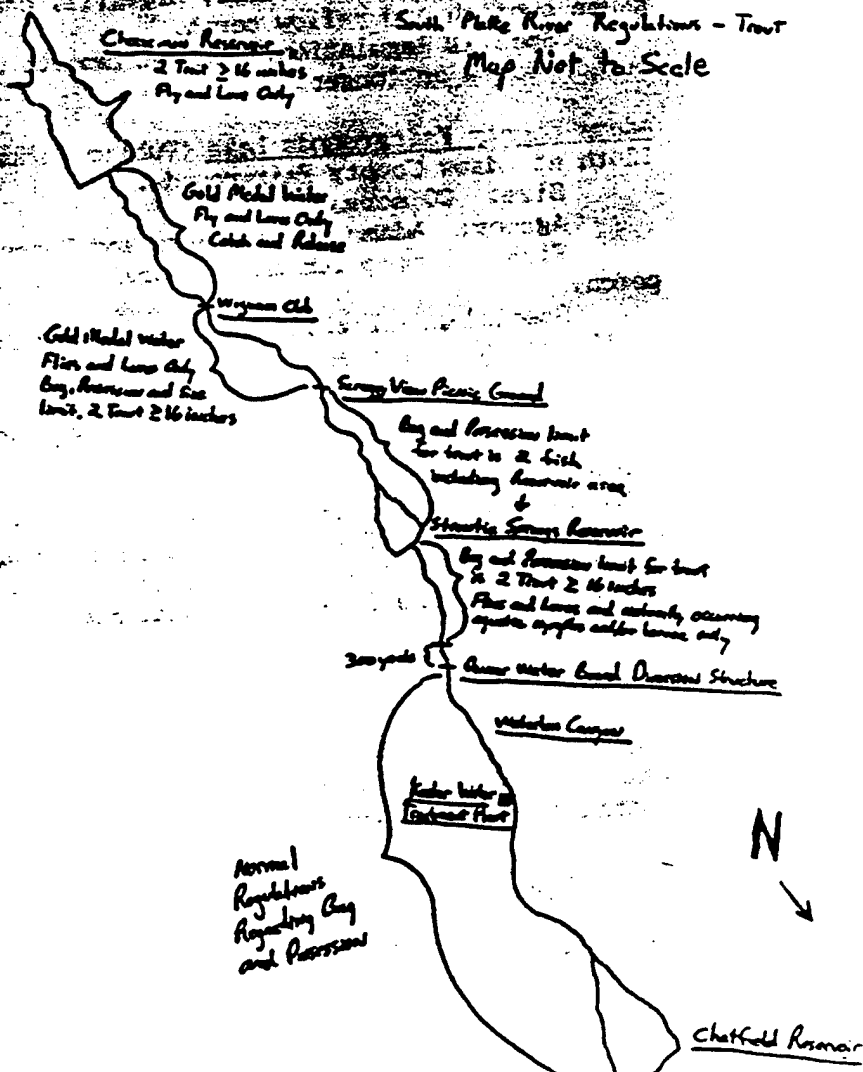 South Platte River Regulations - Trout
Map Not to Scale
Cheesman Reservoir
2 Trout ≥ 16 inches
Fly and Lure Only
Gold Medal Water
Fly and Lure Only
Catch and Release
Wigwam Club
Gold Medal Water
Flies and Lures Only
Bag, Possession and Size
limit, 2 Trout ≥ 16 inches
Scraggy View Picnic Ground
Bag and Possession limit
for trout is 2 fish
including Reservoir area
Strontia Springs Reservoir
Bag and Possession limit for trout
is 2 Trout ≥ 16 inches
Flies and lures and naturally occurring
aquatic nymphs and/or larvae only
300 yards
Denver Water Board Diversion Structure
Waterton Canyon
Kassler Water
Treatment Plant
N
Normal
Regulations
Regarding Bag
and Possession
Chatfield Reservoir